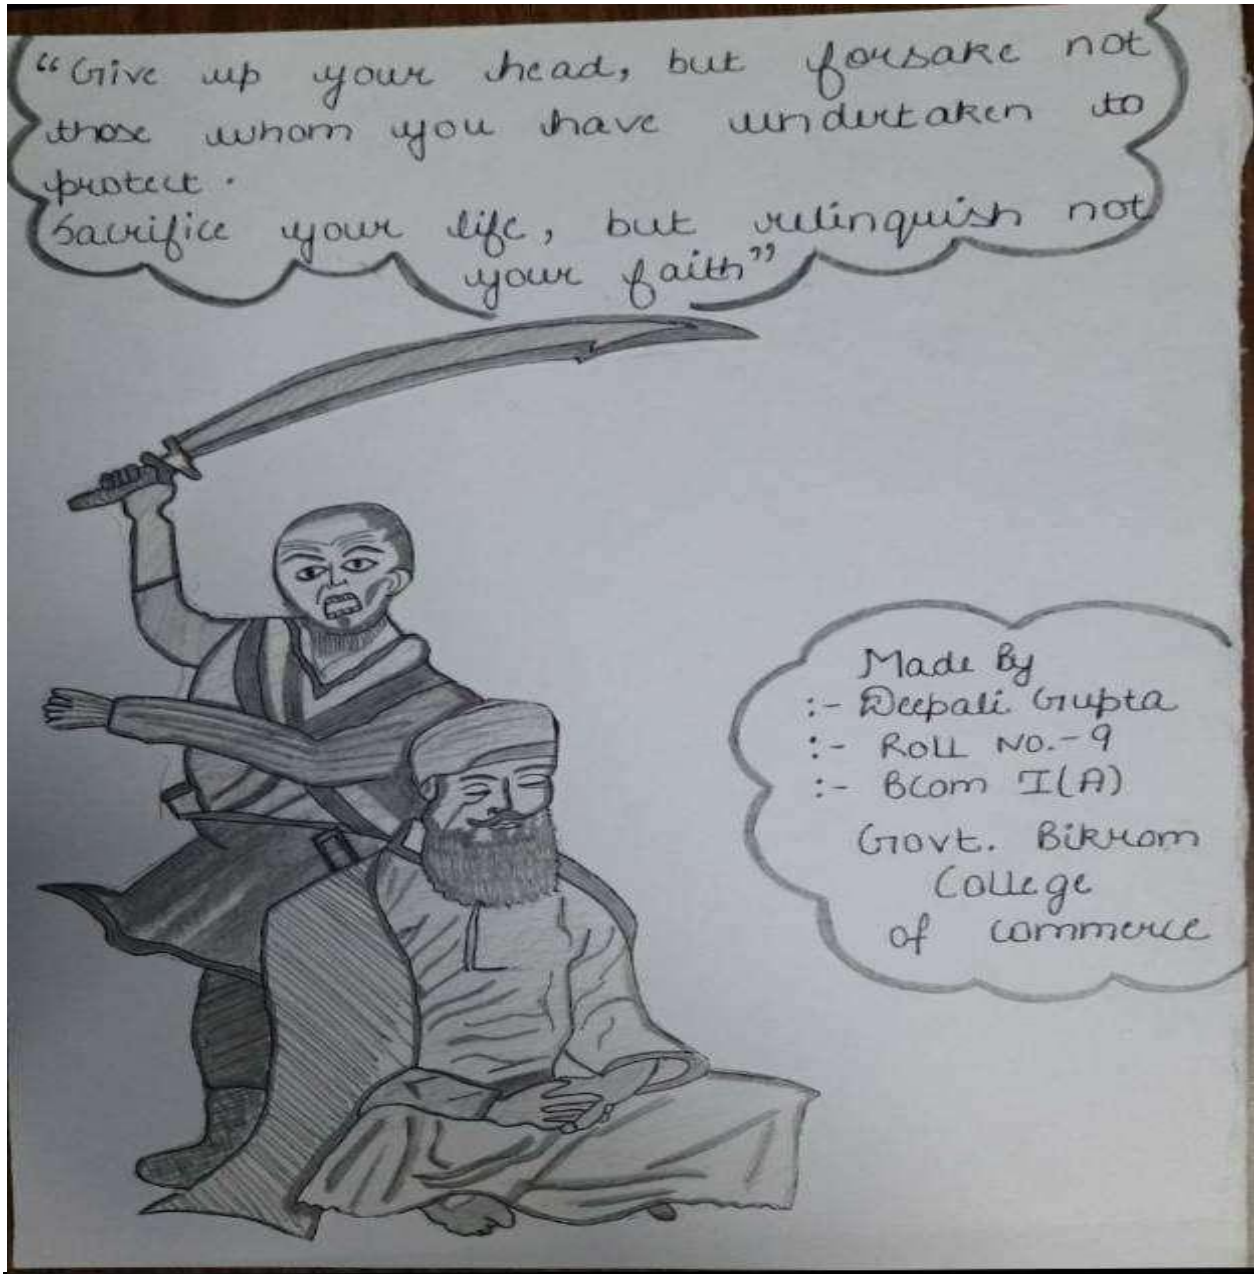 “Give up your head, but forsake not
those whom you have undertaken to
protect.
Sacrifice your life, but relinquish not
your faith”
Made By
:- Deepali Gupta
:- ROLL NO.-9
:- BCom I(A)
Govt. Bikram
College
of commerce